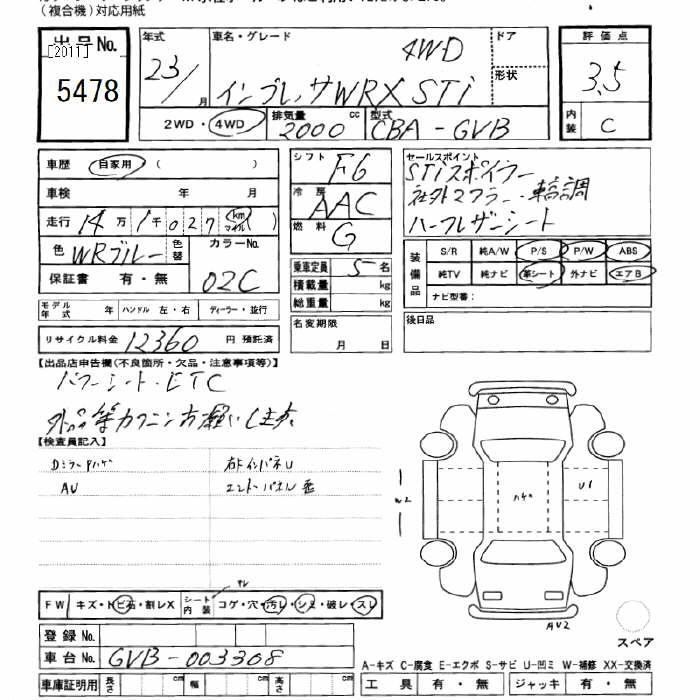 (複合機)対応用紙
出品No. [2011] 5478
年式 23/ 月
車名・グレード 4WD
インプレッサWRX STi
ドア
形状
2WD・4WD
排気量 2000 cc
型式 CBA-GVB
評価点 3.5
内装 C
車歴 自家用 ( )
車検 年 月
走行 14万1千027 (km マイル)
色 WRブルー 色替
カラーNo. 02C
保証書 有・無
シフト F6
冷房 AAC
燃料 G
乗車定員 5名
積載量 kg
総重量 kg
セールスポイント
STiスポイラー
社外マフラー・車高調
ハーフレザーシート
装備品
S/R 純A/W P/S P/W ABS
純TV 純ナビ 革シート 外ナビ エアB
ナビ型番:
モデル年式 年 ハンドル 左・右 ディーラー・並行
リサイクル料金 12360 円 預託済
名変期限 月 日
後日品
【出品店申告欄(不良箇所・欠品・注意事項等)】
パワーシート・ETC
外品等カクニンお願いします。
【検査員記入】
DミラーPハゲ
AU
右ドインパネU
W2
ハゲ
U1
AV2
FW キズ・トビ石・割レX
シート内装 コゲ・穴・汚レ・シミ・破レ・スレ
スペア
登録No.
車台No. GVB-003308
A-キズ C-腐食 E-エクボ S-サビ U-凹ミ W-補修 XX-交換済
車庫証明用 長さ cm 幅 cm 高さ cm
工具 有・無 ジャッキ 有・無